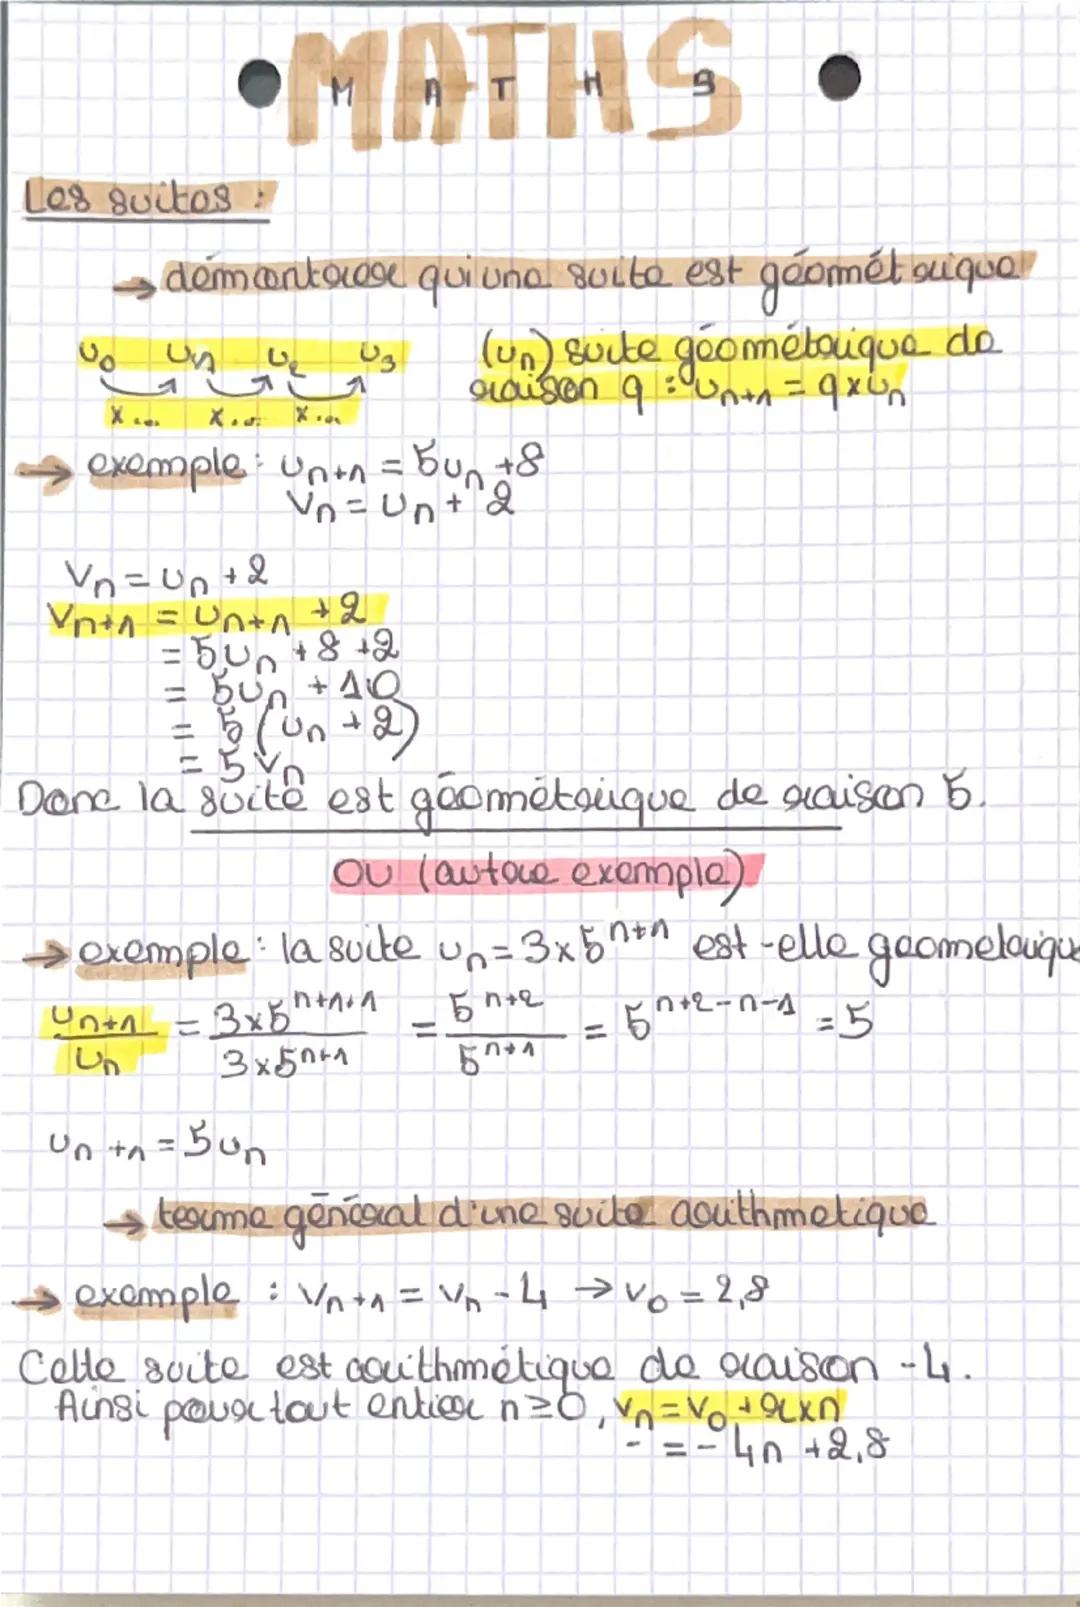 MATHS
M A T H S
Les suites :
→ démontrer qu'une suite est géométrique
u₀ u₁ u₂ u₃
x... x... x...
(uₙ) suite géométrique de
raison q : uₙ₊₁ = q x uₙ
→ exemple : uₙ₊₁ = 5uₙ + 8
vₙ = uₙ + 2
vₙ = uₙ + 2
vₙ₊₁ = uₙ₊₁ + 2
= 5uₙ + 8 + 2
= 5uₙ + 10
= 5 (uₙ + 2)
= 5vₙ
Donc la suite est géométrique de raison 5.
OU (autre exemple)
→ exemple : la suite uₙ = 3x5ⁿ⁺¹ est-elle geometrique
uₙ₊₁/uₙ = 3x5ⁿ⁺¹⁺¹/3x5ⁿ⁺¹ = 5ⁿ⁺²/5ⁿ⁺¹ = 5ⁿ⁺²⁻ⁿ⁻¹ = 5
uₙ₊₁ = 5uₙ
→ terme général d'une suite arithmetique
→ exemple : vₙ₊₁ = vₙ - 4 → v₀ = 2,8
Cette suite est arithmétique de raison -4.
Ainsi pour tout entier n ≥ 0, vₙ = v₀ + r x n
- = - 4n + 2,8